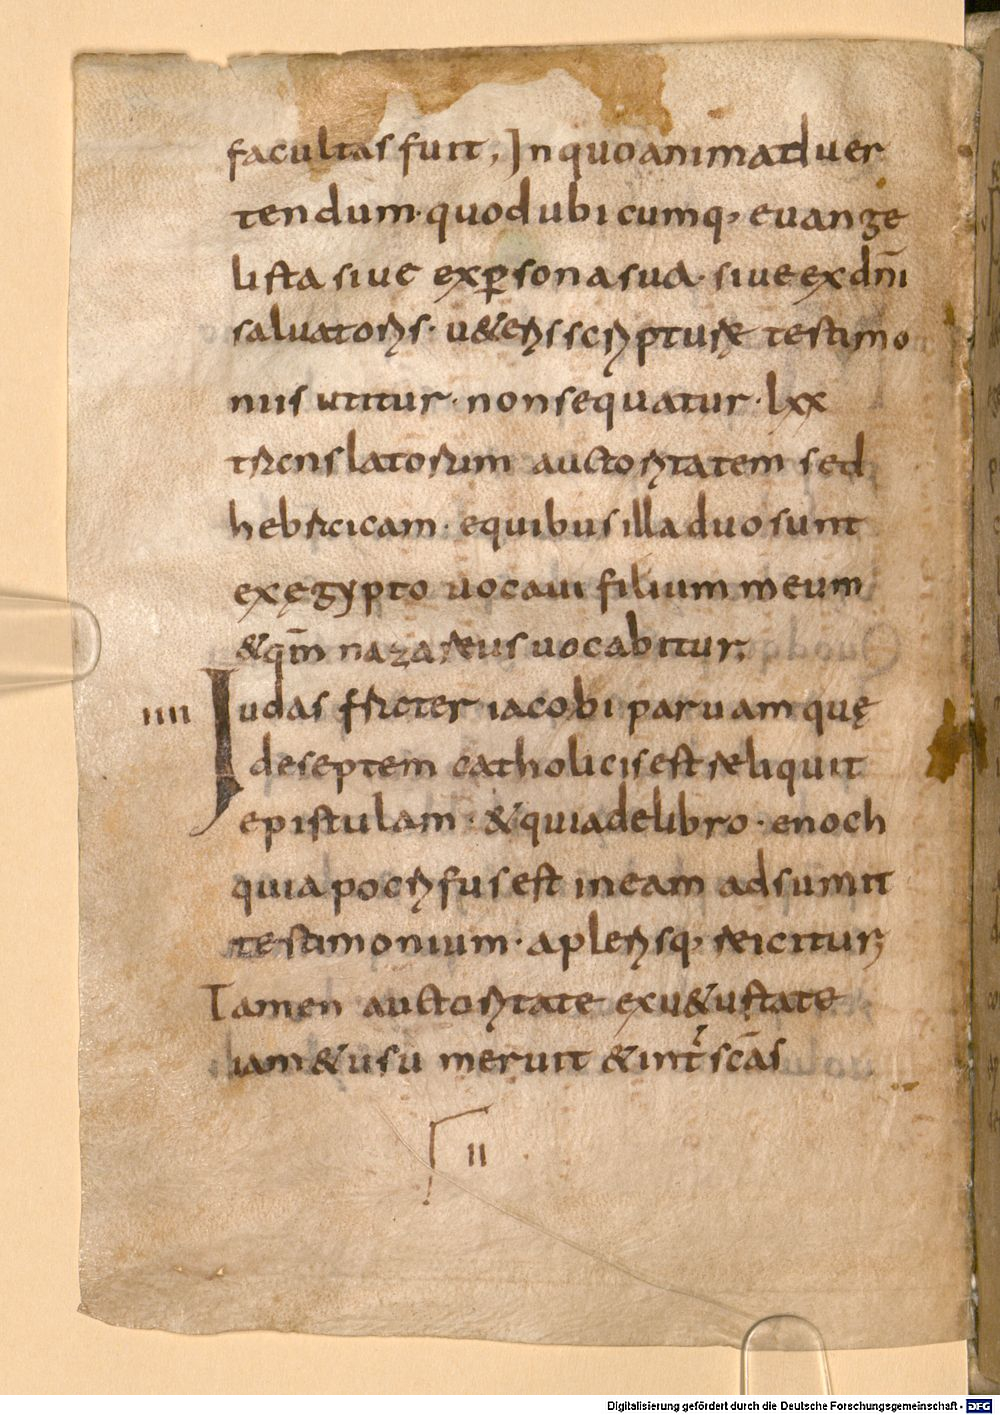 facultas fuit, In quo animaduer
tendum· quod ubicumq; euange
lista siue ex p̱sona sua· siue ex dn̄i
saluatoris· u&eris scripturę testimo
niis utitur· non sequatur· lxx
translatorum auctoritatem sed
hebraicam· e quibus illa duo sunt
ex ęgypto uocaui filium meum
& qm̄ nazareus uocabitur;
IIII Iudas frater iacobi paruam quę
de septem catholicis est reliquit
epistulam· & quia de libro· enoch
quia pocrifus est in eam adsumit
testimonium· a plerisq; reicitur;
Tamen auctoritate ex u&ustate
iam & usu meruit & int̄ scās
II
Digitalisierung gefördert durch die Deutsche Forschungsgemeinschaft - DFG